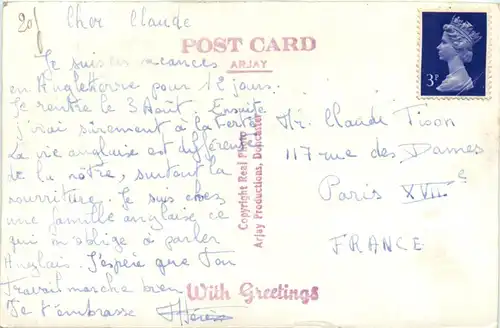 20f
Cher Claude
POST CARD
ARJAY
3P
Je suis en vacances
en Angleterre pour 12 jours.
Je rentre le 3 Août. Ensuite
j'irai sûrement à la Ferté
La vie anglaise est différente
de la nôtre, surtout la
nourriture. Je suis chez
une famille anglaise, ce
qui m'oblige à parler
Anglais. J'espère que Ton
Travail marche bien
Je t'embrasse
Copyright Real Photo
Arjay Productions, Doncaster
Mr. Claude
117 rue des Dames
Paris XVIIe
FRANCE
With Greetings